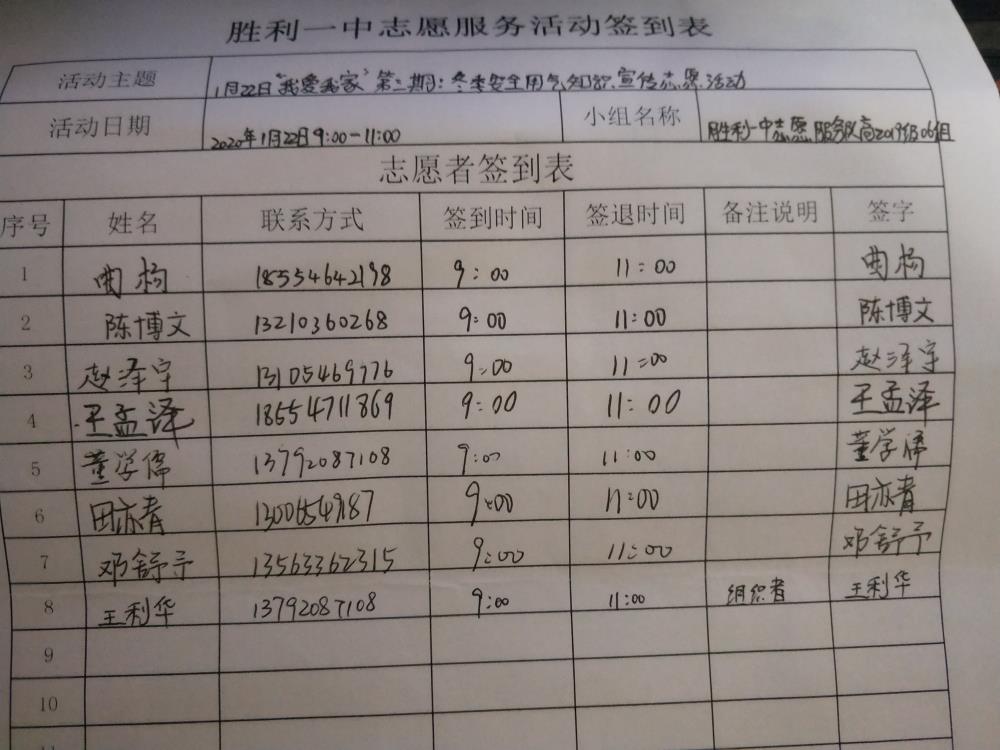 胜利一中志愿服务活动签到表
活动主题 1月22日"我爱我家"第二期：冬季安全用气知识宣传志愿活动
活动日期 2020年1月22日9:00-11:00 小组名称 胜利一中志愿服务队高2019级06组
志愿者签到表
序号 姓名 联系方式 签到时间 签退时间 备注说明 签字
1 曲杨 18554642198 9:00 11:00 曲杨
2 陈博文 13210360268 9:00 11:00 陈博文
3 赵泽宇 13105469776 9:00 11:00 赵泽宇
4 王孟泽 18654711869 9:00 11:00 王孟泽
5 董学儒 13792087108 9:00 11:00 董学儒
6 田亦青 9:00 11:00 田亦青
7 邓舒予 13563362315 9:00 11:00 邓舒予
8 王利华 13792087108 9:00 11:00 组织者 王利华
9
10